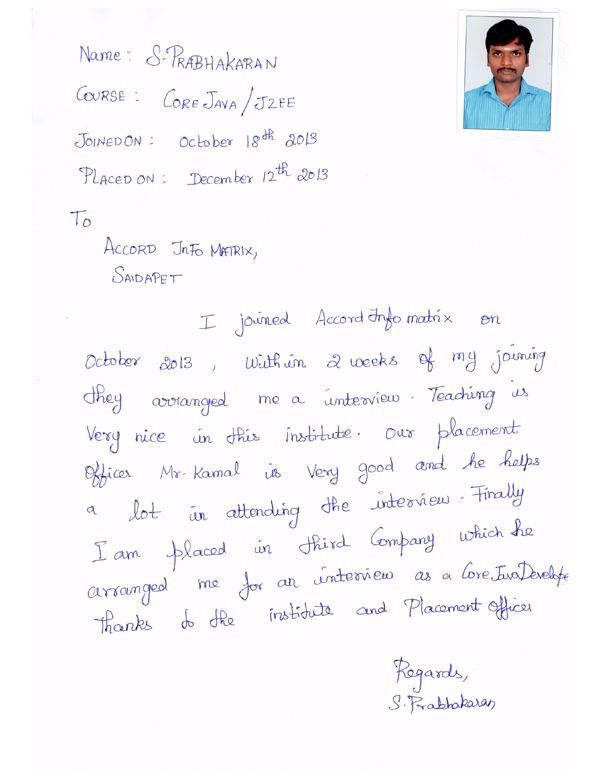 Name: S. PRABHAKARAN
COURSE: CORE JAVA / J2EE
JOINED ON: October 18th 2013
PLACED ON: December 12th 2013
To
ACCORD INFO MATRIX,
SAIDAPET
I joined Accord Info matrix on
October 2013, Within 2 weeks of my joining
they arranged me a interview. Teaching is
Very nice in this institute. Our placement
officer Mr. Kamal is very good and he helps
a lot in attending the interview. Finally
I am placed in third Company which he
arranged me for an interview as a Core Java Develope
thanks to the institute and Placement officer
Regards,
S. Prabhakaran